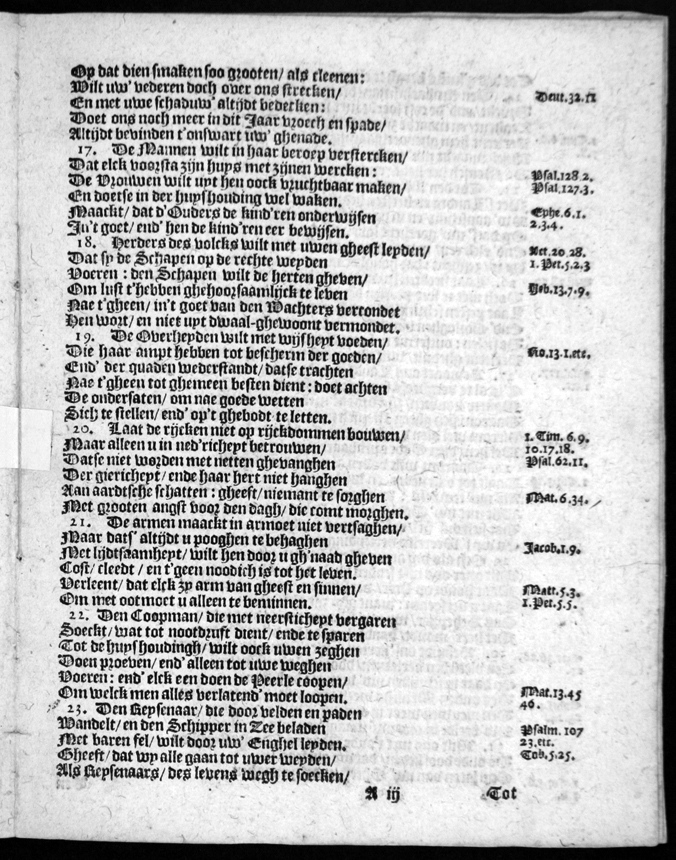 Op dat dien smaken soo grooten/ als cleenen:
Wilt uw' vederen doch over ons strecken/
En met uwe schaduw' altijdt bedecken: Deut.32.11
Doet ons noch meer in dit Jaar vroech en spade/
Altijdt bevinden t'onswart uw' ghenade.
17. De Mannen wilt in haar beroep verstercken/
Dat elck voorsta zijn huys met zijnen wercken: Psal.128.2.
De Vrouwen wilt uyt hen oock vruchtbaar maken/ Psal.127.3.
En doetse in der huyshouding wel waken.
Maackt/ dat d'Ouders de kind'ren onderwijsen Ephe.6.1.
In't goet/ end' hen de kind'ren eer bewijsen. 2.3.4.
18. Herders des volcks wilt met uwen gheest leyden/
Dat sy de Schapen op de rechte weyden Act.20.28.
Voeren: den Schapen wilt de herten gheven/ 1. Pet.5.2.3
Om lust t'hebben ghehoorsaamlijck te leven Heb.13.7.9.
Nae t'gheen/ in't goet van den Wachters vercondet
Hen wort/ en niet uyt dwaal-ghewoont vermondet.
19. De Overheyden wilt met wijsheyt voeden/
Die haar ampt hebben tot bescherm der goeden/ Ro.13.1.etc.
End' der quaden wederstandt/ datse trachten
Nae t'gheen tot ghemeen besten dient: doet achten
De ondersaten/ om nae goede wetten
Sich te stellen/ end' op't ghebodt te letten.
20. Laat de rijcken niet op rijckdommen bouwen/
Maar alleen u in ned'richeyt betrouwen/ 1. Tim. 6.9.
10.17.18.
Datse niet worden met netten ghevanghen Psal.62.11.
Der giericheyt/ ende haar hert niet hanghen
Aan aardtsche schatten: gheeft/ niemant te sorghen Mat.6.34.
Met grooten angst voor den dagh/ die comt morghen.
21. De armen maackt in armoet niet vertsaghen/
Maar dats' altijdt u pooghen te behaghen
Met lijdtsaamheyt/ wilt hen door u gh'naad gheven Jacob.1.9.
Cost/ cleedt/ en t'geen noodich is tot het leven.
Verleent/ dat elck zy arm van gheest en sinnen/ Matt.5.3.
Om met ootmoet u alleen te beminnen. 1.Pet.5.5.
22. Den Coopman/ die met neersticheyt vergaren
Soeckt/ wat tot nootdruft dient/ ende te sparen
Tot de huyshoudingh/ wilt oock uwen zeghen
Doen proeven/ end' alleen tot uwe weghen
Voeren: end' elck een doen de Peerle coopen/
Om welck men alles verlatend' moet loopen. Mat.13.45
46.
23. Den Reysenaar/ die door velden en paden
Wandelt/ en den Schipper in Zee beladen Psalm. 107
Met baren fel/ wilt door uw' Enghel leyden. 23.etc.
Gheeft/ dat wy alle gaan tot uwer weyden/ Tob.5.25.
Als Reysenaars/ des levens wegh te soecken/
A iij Tot